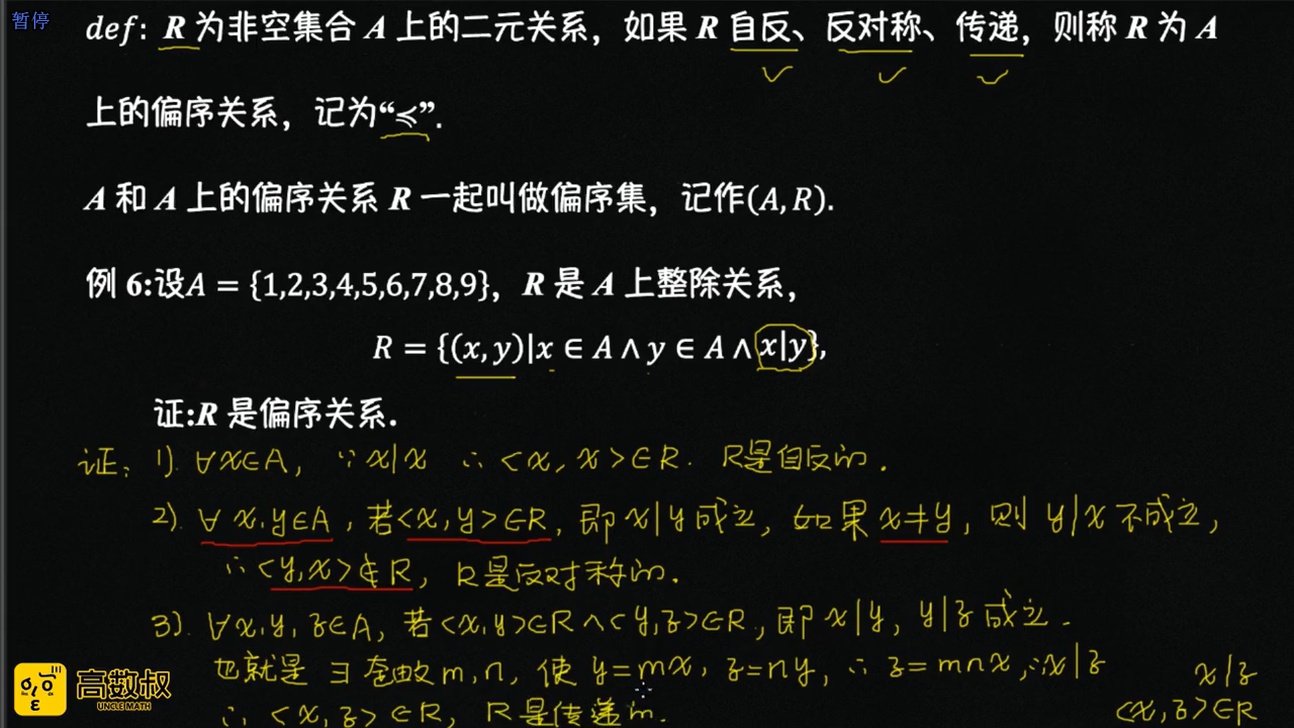 暂停
def: R 为非空集合 A 上的二元关系，如果 R 自反、反对称、传递，则称 R 为 A
上的偏序关系，记为“≼”.
A 和 A 上的偏序关系 R 一起叫做偏序集，记作(A, R).
例 6:设A = {1,2,3,4,5,6,7,8,9}，R 是 A 上整除关系，
R = {(x, y)|x ∈ A ∧ y ∈ A ∧ x|y},
证:R 是偏序关系.
证: 1). ∀x∈A, ∵ x|x ∴ <x, x>∈R. R是自反的.
2). ∀ x,y∈A, 若<x, y>∈R, 即 x|y 成立, 如果 x≠y, 则 y|x 不成立,
∴ <y,x>∉R, R是反对称的.
3). ∀x,y,z∈A, 若<x,y>∈R∧<y,z>∈R, 即 x|y, y|z 成立.
也就是 ∃ 整数 m,n, 使 y=mx, z=ny, ∴ z=mnx, ∴x|z
x|z
∴ <x,z>∈R, R是传递的.
<x,z>∈R
高数叔
UNCLE MATH